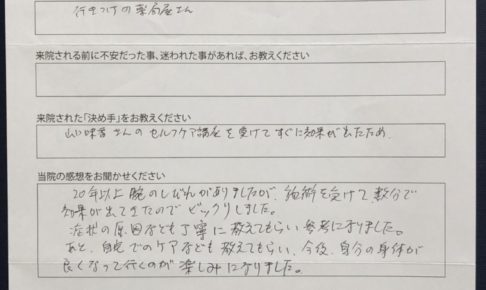 行きつけの薬局屋さん
来院される前に不安だった事、迷われた事があれば、お教えください
来院された「決め手」をお教えください
さんのセルフケア講座を受けてすぐに効果が出たため
当院の感想をお聞かせください
20年以上腕のしびれがありましたが、施術を受けて数分で
効果が出てきたのでビックリしました。
症状の原因なども丁寧に教えてもらい参考になりました。
あと、自宅でのケアなども教えてもらい、今後、自分の身体が
良くなって行くのが楽しみになりました。